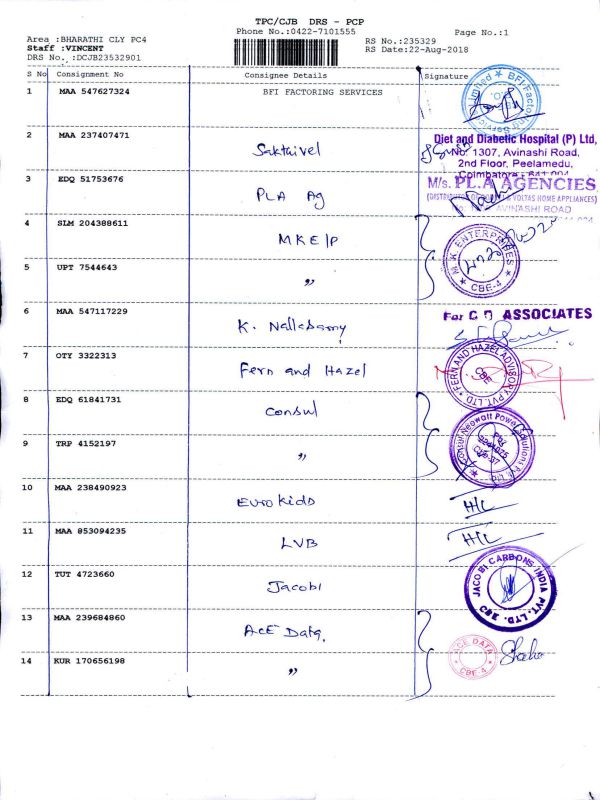 TPC/CJB DRS - PCP
Phone No.:0422-7101555
Page No.:1
Area :BHARATHI CLY PC4
Staff :VINCENT
DRS No. :DCJB23532901
RS No.:235329
RS Date:22-Aug-2018
S No Consignment No Consignee Details Signature
1 MAA 547627324 BFI FACTORING SERVICES
2 MAA 237407471 Sakthivel
Diet and Diabetic Hospital (P) Ltd,
No: 1307, Avinashi Road,
2nd Floor, Peelamedu,
Coimbatore - 641 004
3 EDQ 51753676 PLA Ag
M/s. P.L.A AGENCIES
VOLTAS HOME APPLIANCES)
AVINASHI ROAD
4 SLM 204388611 MKE/P
M.K. ENTERPRISES
CBE-4
5 UPT 7544643 "
6 MAA 547117229
ASSOCIATES
7 OTY 3322313 Fern and Hazel
FERN AND HAZEL ADVISORY PVT. LTD
CBE
8 EDQ 61841731 Consul
Consul Neowatt Power Solutions Pvt Ltd
9 TRP 4152197 "
10 MAA 238490923 Eurokids
11 MAA 853094235 LVB
12 TUT 4723660 Jacobi
JACOBI CARBONS INDIA PVT. LTD.
13 MAA 239684860 ACE Data,
ACE DATA
CBE-4
14 KUR 170656198 "